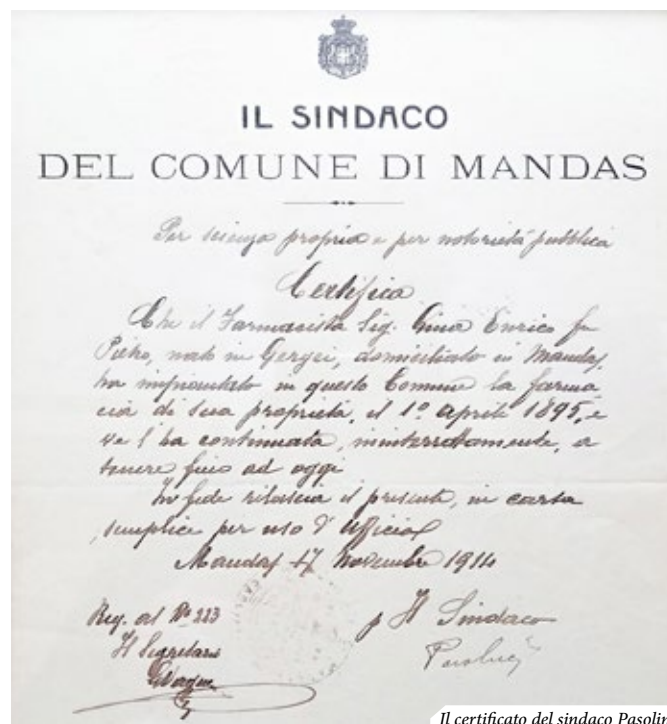 IL SINDACO
DEL COMUNE DI MANDAS
Per scienza propria e per notorietà pubblica
Certifica
Che il Farmacista Sig. Enrico fu
Pietro, nato in Gergei, domiciliato in Mandas,
ha impiantato in questo Comune la farma
cia di sua proprietà, il 1º aprile 1895, e
ve l'ha continuata, ininterrottamente, a
tenere fino ad oggi
In fede rilascia il presente, in carta
semplice per uso d'ufficio
Mandas 17 Novembre 1914
Reg. al Nº 223
Il Segretario
p Il Sindaco
Il certificato del sindaco Pasolin